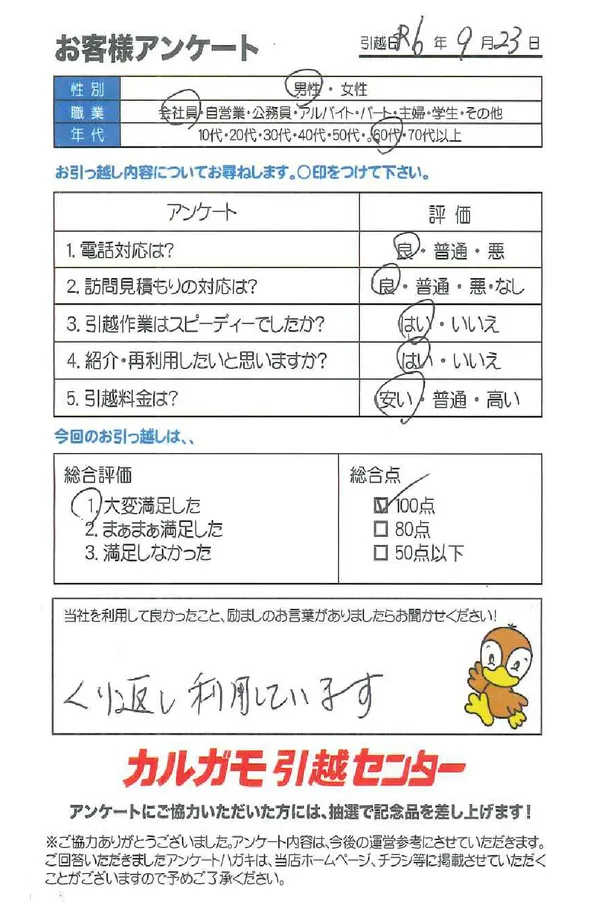 お客様アンケート
引越日 R6 年 9 月 23 日
性別 男性・女性
職業 会社員・自営業・公務員・アルバイト・パート・主婦・学生・その他
年代 10代・20代・30代・40代・50代・60代・70代以上
お引っ越し内容についてお尋ねします。〇印をつけて下さい。
アンケート 評価
1. 電話対応は? 良・普通・悪
2. 訪問見積もりの対応は? 良・普通・悪・なし
3. 引越作業はスピーディーでしたか? はい・いいえ
4. 紹介・再利用したいと思いますか? はい・いいえ
5. 引越料金は? 安い・普通・高い
今回のお引っ越しは、、
総合評価 総合点
1. 大変満足した 100点
2. まぁまぁ満足した 80点
3. 満足しなかった 50点以下
当社を利用して良かったこと、励ましのお言葉がありましたらお聞かせください!
くり返し利用しています
カルガモ引越センター
アンケートにご協力いただいた方には、抽選で記念品を差し上げます!
※ご協力ありがとうございました。アンケート内容は、今後の運営参考にさせていただきます。
ご回答いただきましたアンケートハガキは、当店ホームページ、チラシ等に掲載させていただく
ことがございますので予めご了承ください。